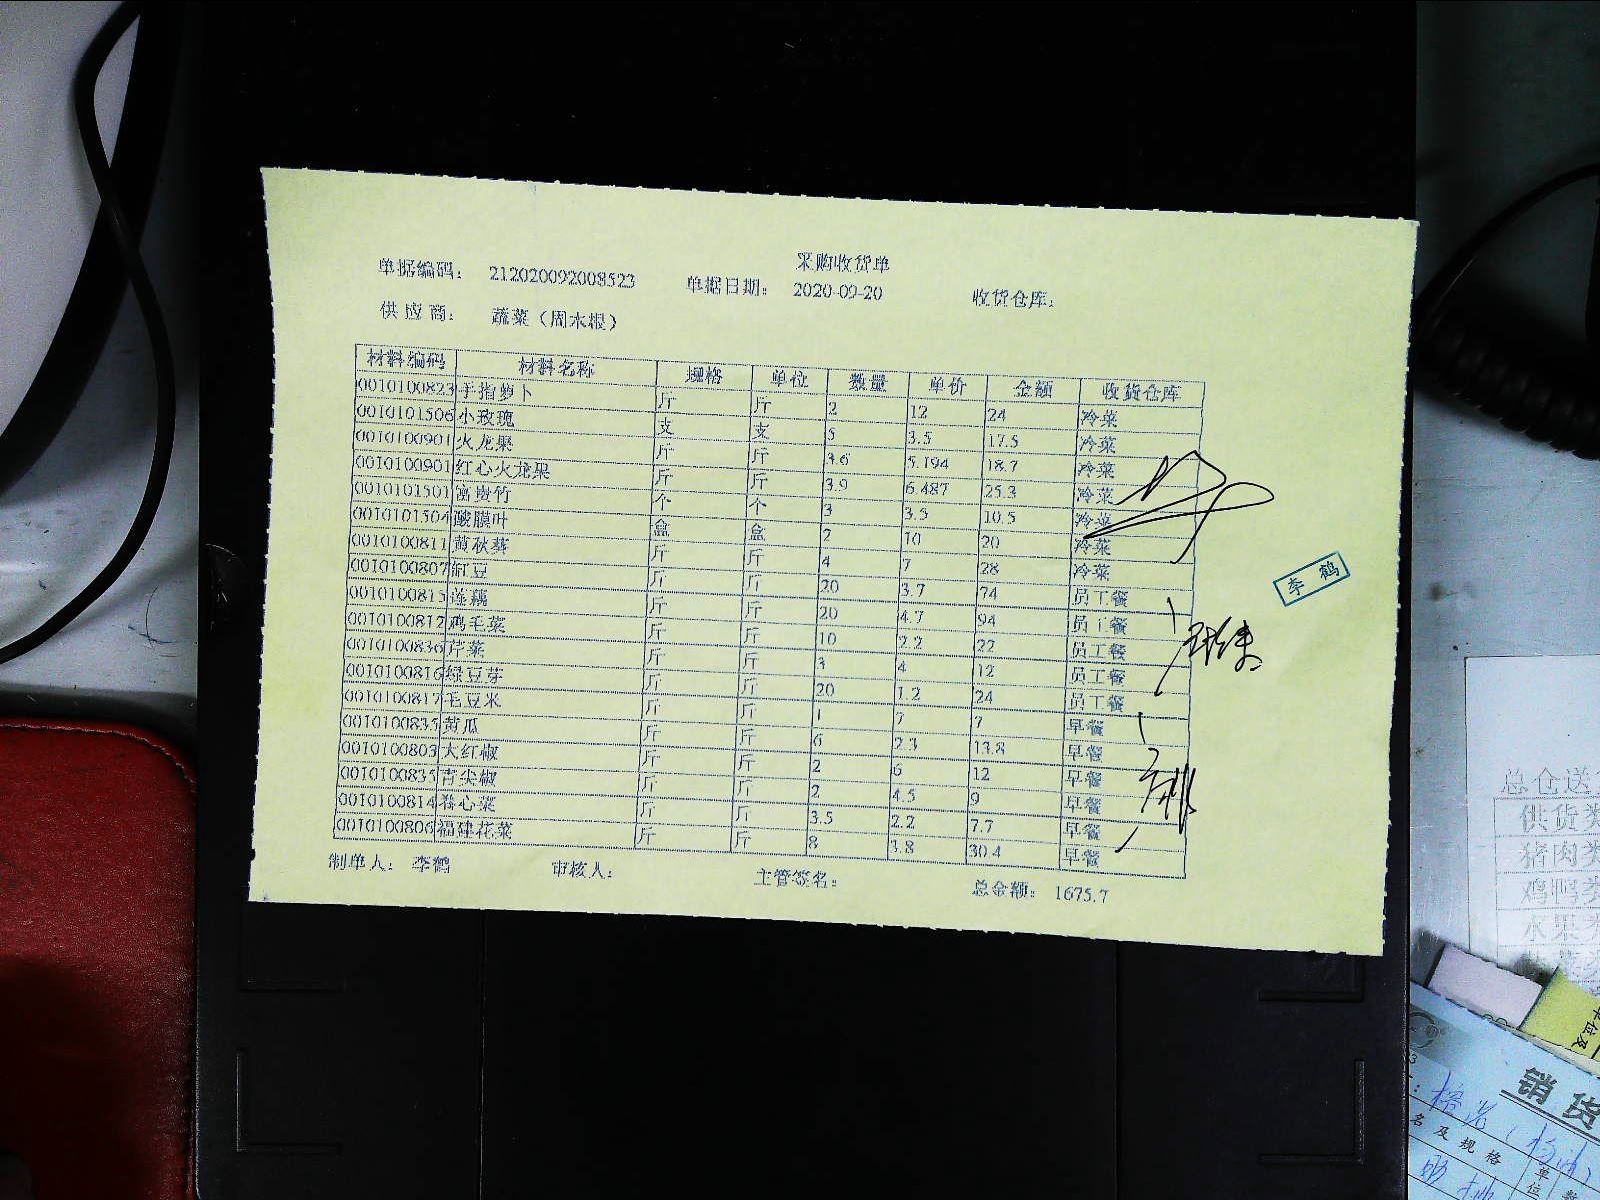 采购收货单
单据编码： 212020092008523 单据日期： 2020-09-20 收货仓库：
供应商： 蔬菜（周水根）
材料编码 材料名称 规格 单位 数量 单价 金额 收货仓库
0010100823 手指萝卜 斤 斤 2 12 24 冷菜
0010101506 小玫瑰 支 支 5 3.5 17.5 冷菜
0010100901 火龙果 斤 斤 3.6 5.194 18.7 冷菜
0010100901 红心火龙果 斤 斤 3.9 6.487 25.3 冷菜
0010101501 富贵竹 个 个 3 3.5 10.5 冷菜
0010101504 酸膜叶 盒 盒 2 10 20 冷菜
0010100811 黄秋葵 斤 斤 4 7 28 冷菜
0010100807 豇豆 斤 斤 20 3.7 74 员工餐
0010100815 莲藕 斤 斤 20 4.7 94 员工餐
0010100812 鸡毛菜 斤 斤 10 2.2 22 员工餐
0010100836 芹菜 斤 斤 3 4 12 员工餐
0010100816 绿豆芽 斤 斤 20 1.2 24 员工餐
0010100817 毛豆米 斤 斤 1 7 7 早餐
0010100835 黄瓜 斤 斤 6 2.3 13.8 早餐
0010100803 大红椒 斤 斤 2 6 12 早餐
0010100835 青尖椒 斤 斤 2 4.5 9 早餐
0010100814 卷心菜 斤 斤 3.5 2.2 7.7 早餐
0010100806 福建花菜 斤 斤 8 3.8 30.4 早餐
制单人： 李鹤 审核人： 主管签名： 总金额： 1675.7
李鹤
总仓送
供货类
猪肉类
鸡鸭类
水果类
单位及
销货
名及规格
单位